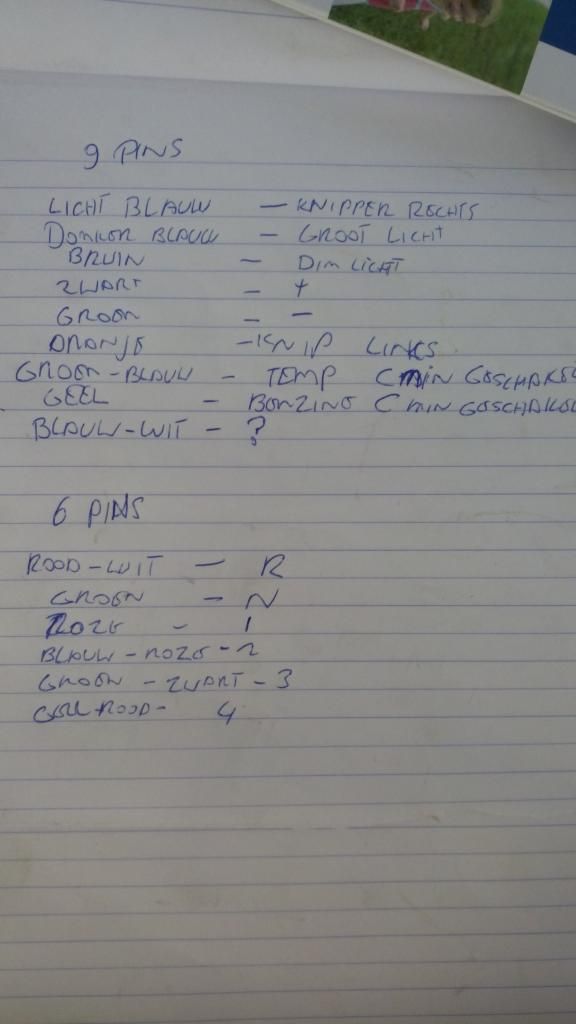 9 PINS
LICHT BLAUW — KNIPPER RECHTS
DONKER BLAUW — GROOT LICHT
BRUIN — DIM LICHT
ZWART — +
GROEN — —
ORANJE — KNIP LINKS
GROEN-BLAUW — TEMP C MIN GESCHAKEL
GEEL — BENZINE C MIN GESCHAKEL
BLAUW-WIT — ?
6 PINS
ROOD-WIT — R
GROEN — N
ROZE — 1
BLAUW-ROZE - 2
GROEN - ZWART - 3
GEEL-ROOD - 4